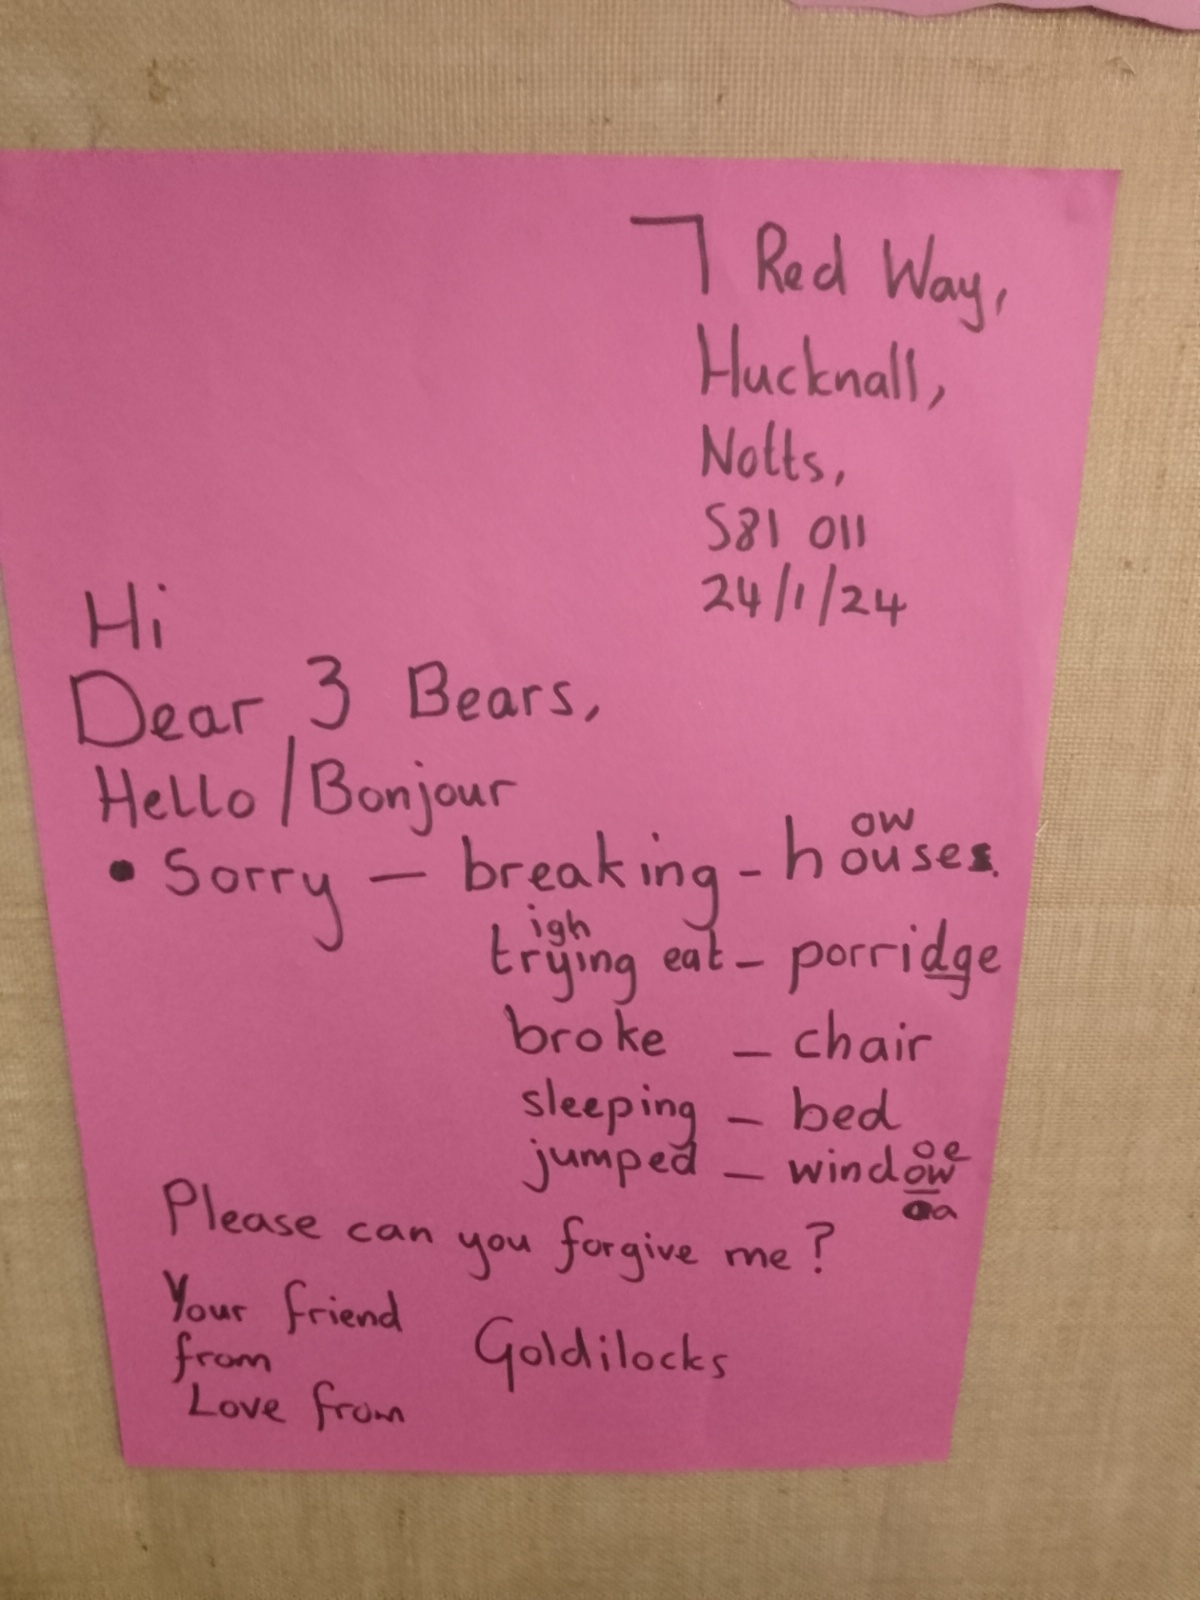 7 Red Way,
Hucknall,
Notts,
S81 011
24/1/24
Hi
Dear 3 Bears,
Hello/Bonjour
ow
• Sorry — breaking - houses
igh
trying eat - porridge
broke - chair
sleeping - bed
oe
jumped - window
a
Please can you forgive me?
Your friend
from Goldilocks
Love from